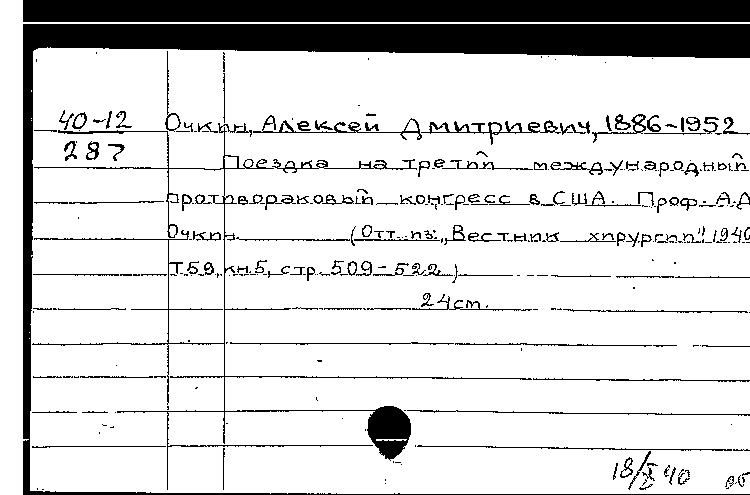 40-12 Очкин, Алексей Дмитриевич, 1886-1952
287 Поездка на третий международный
противораковый конгресс в США. Проф. А.Д
Очкин (Отт. из: „Вестник хирургии" 1940
Т59, кн 5, стр. 509-522).
24 cm.
18/X 40 об